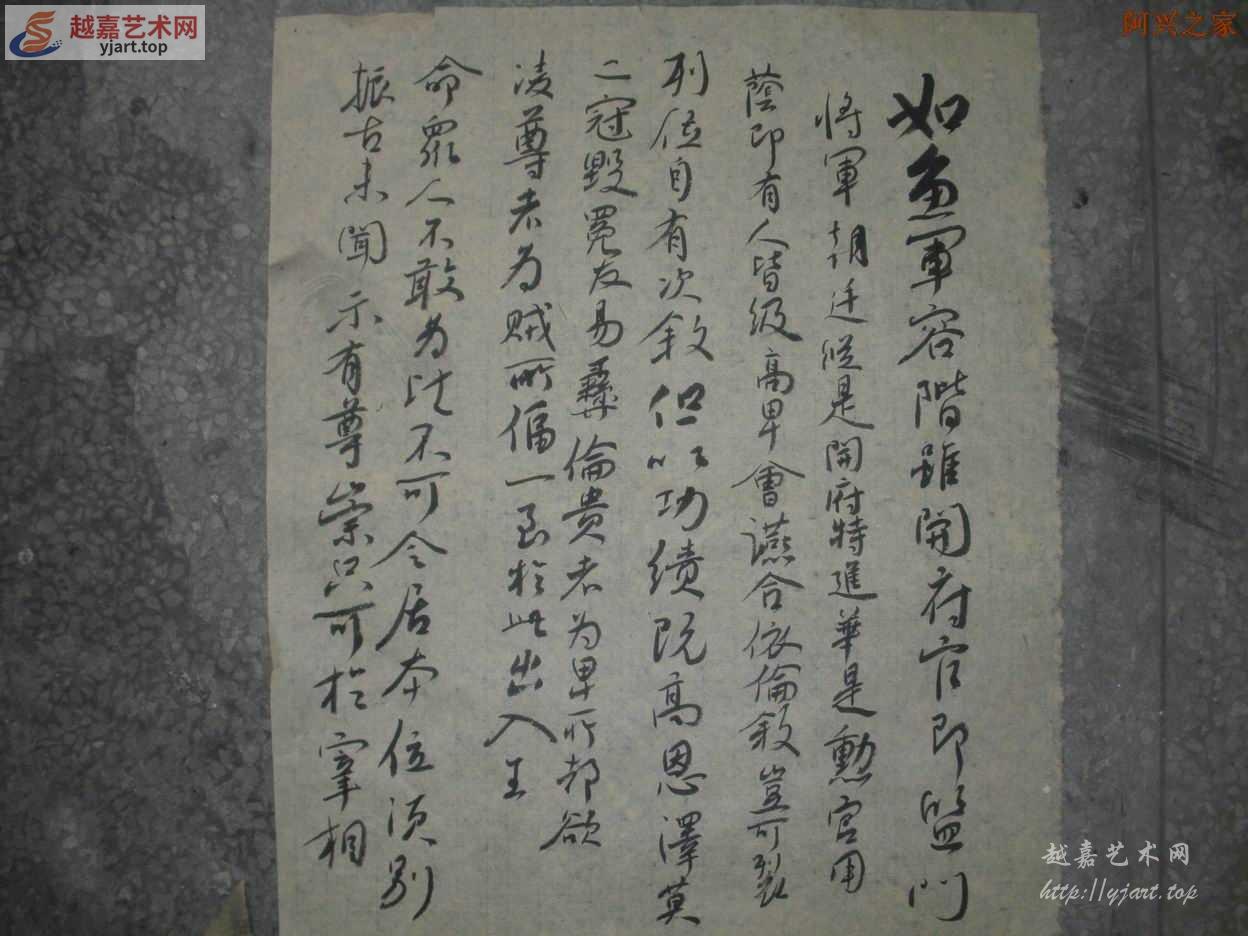 越嘉艺术网
yjart.top
阿兴之家
如魚軍容階雖開府官即監門
將軍朝廷從是開府特進華是勳官用
蔭即有人皆级高卑會讌合依倫敘豈可裂
列位自有次敘但以功績既高恩澤莫
二冠毀冕反易彝倫貴者为卑所却欲
凌尊者为賊所偪一至於此出入王
命眾人不敢为比不可令居本位須别
振古未聞示有尊崇只可於宰相
越嘉艺术网
http://yjart.top